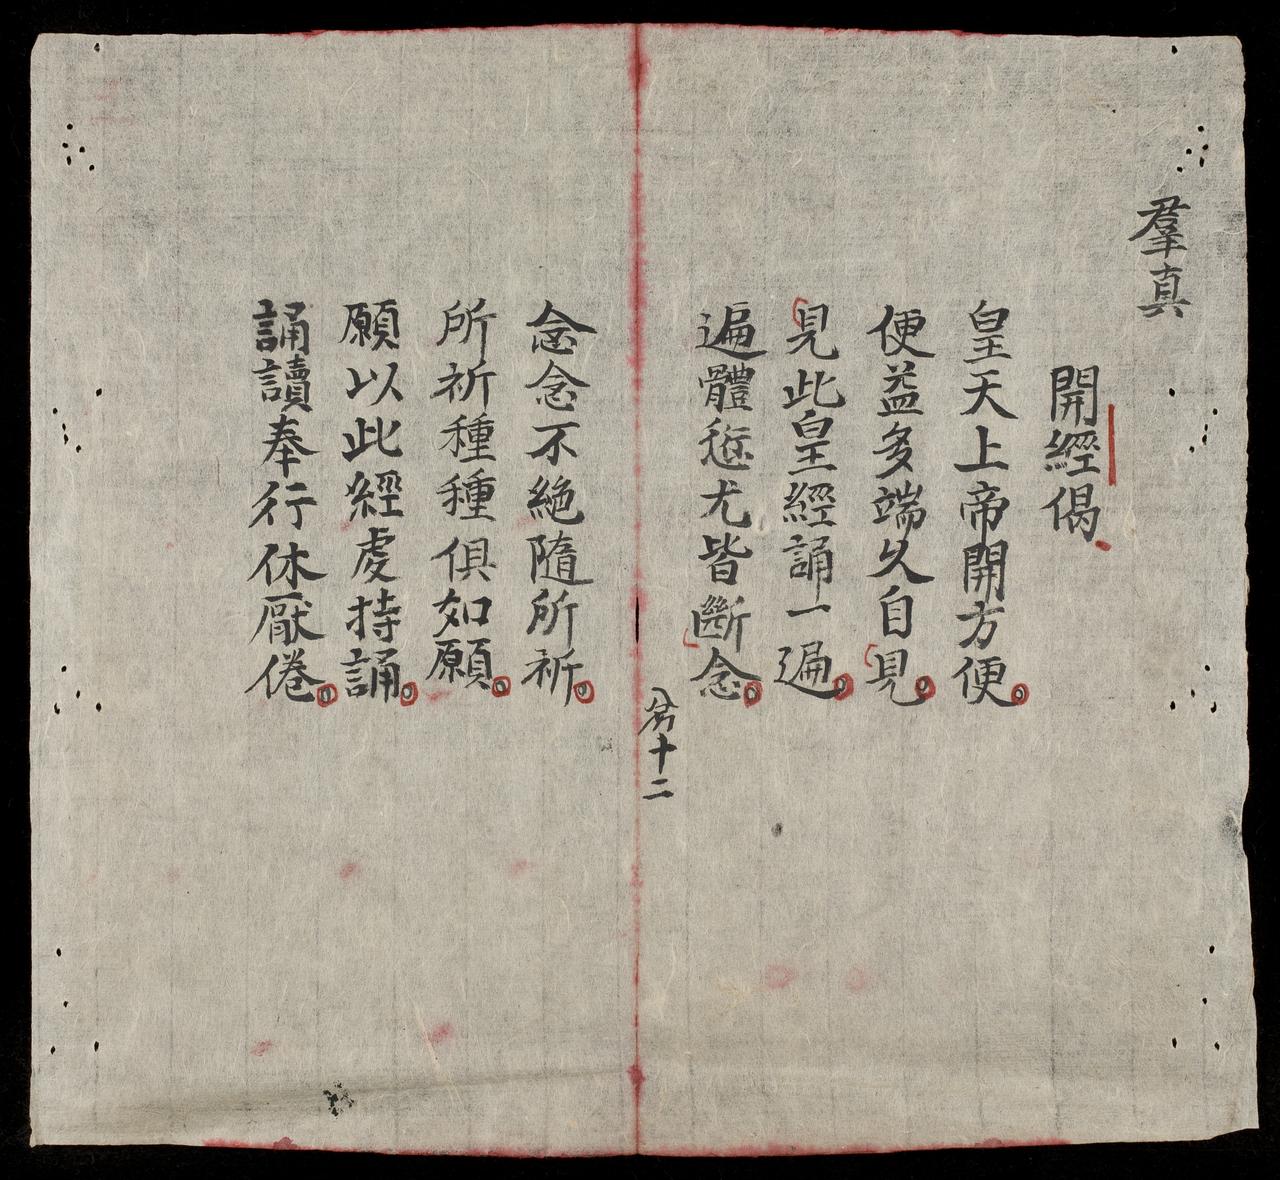 羣真
開經偈
皇天上帝開方便
便益多端久自見
見此皇經誦一遍
遍體愆尤皆斷念
十二
念念不絶隨所祈
所祈種種俱如願
願以此經虔持誦
誦讀奉行休厭倦